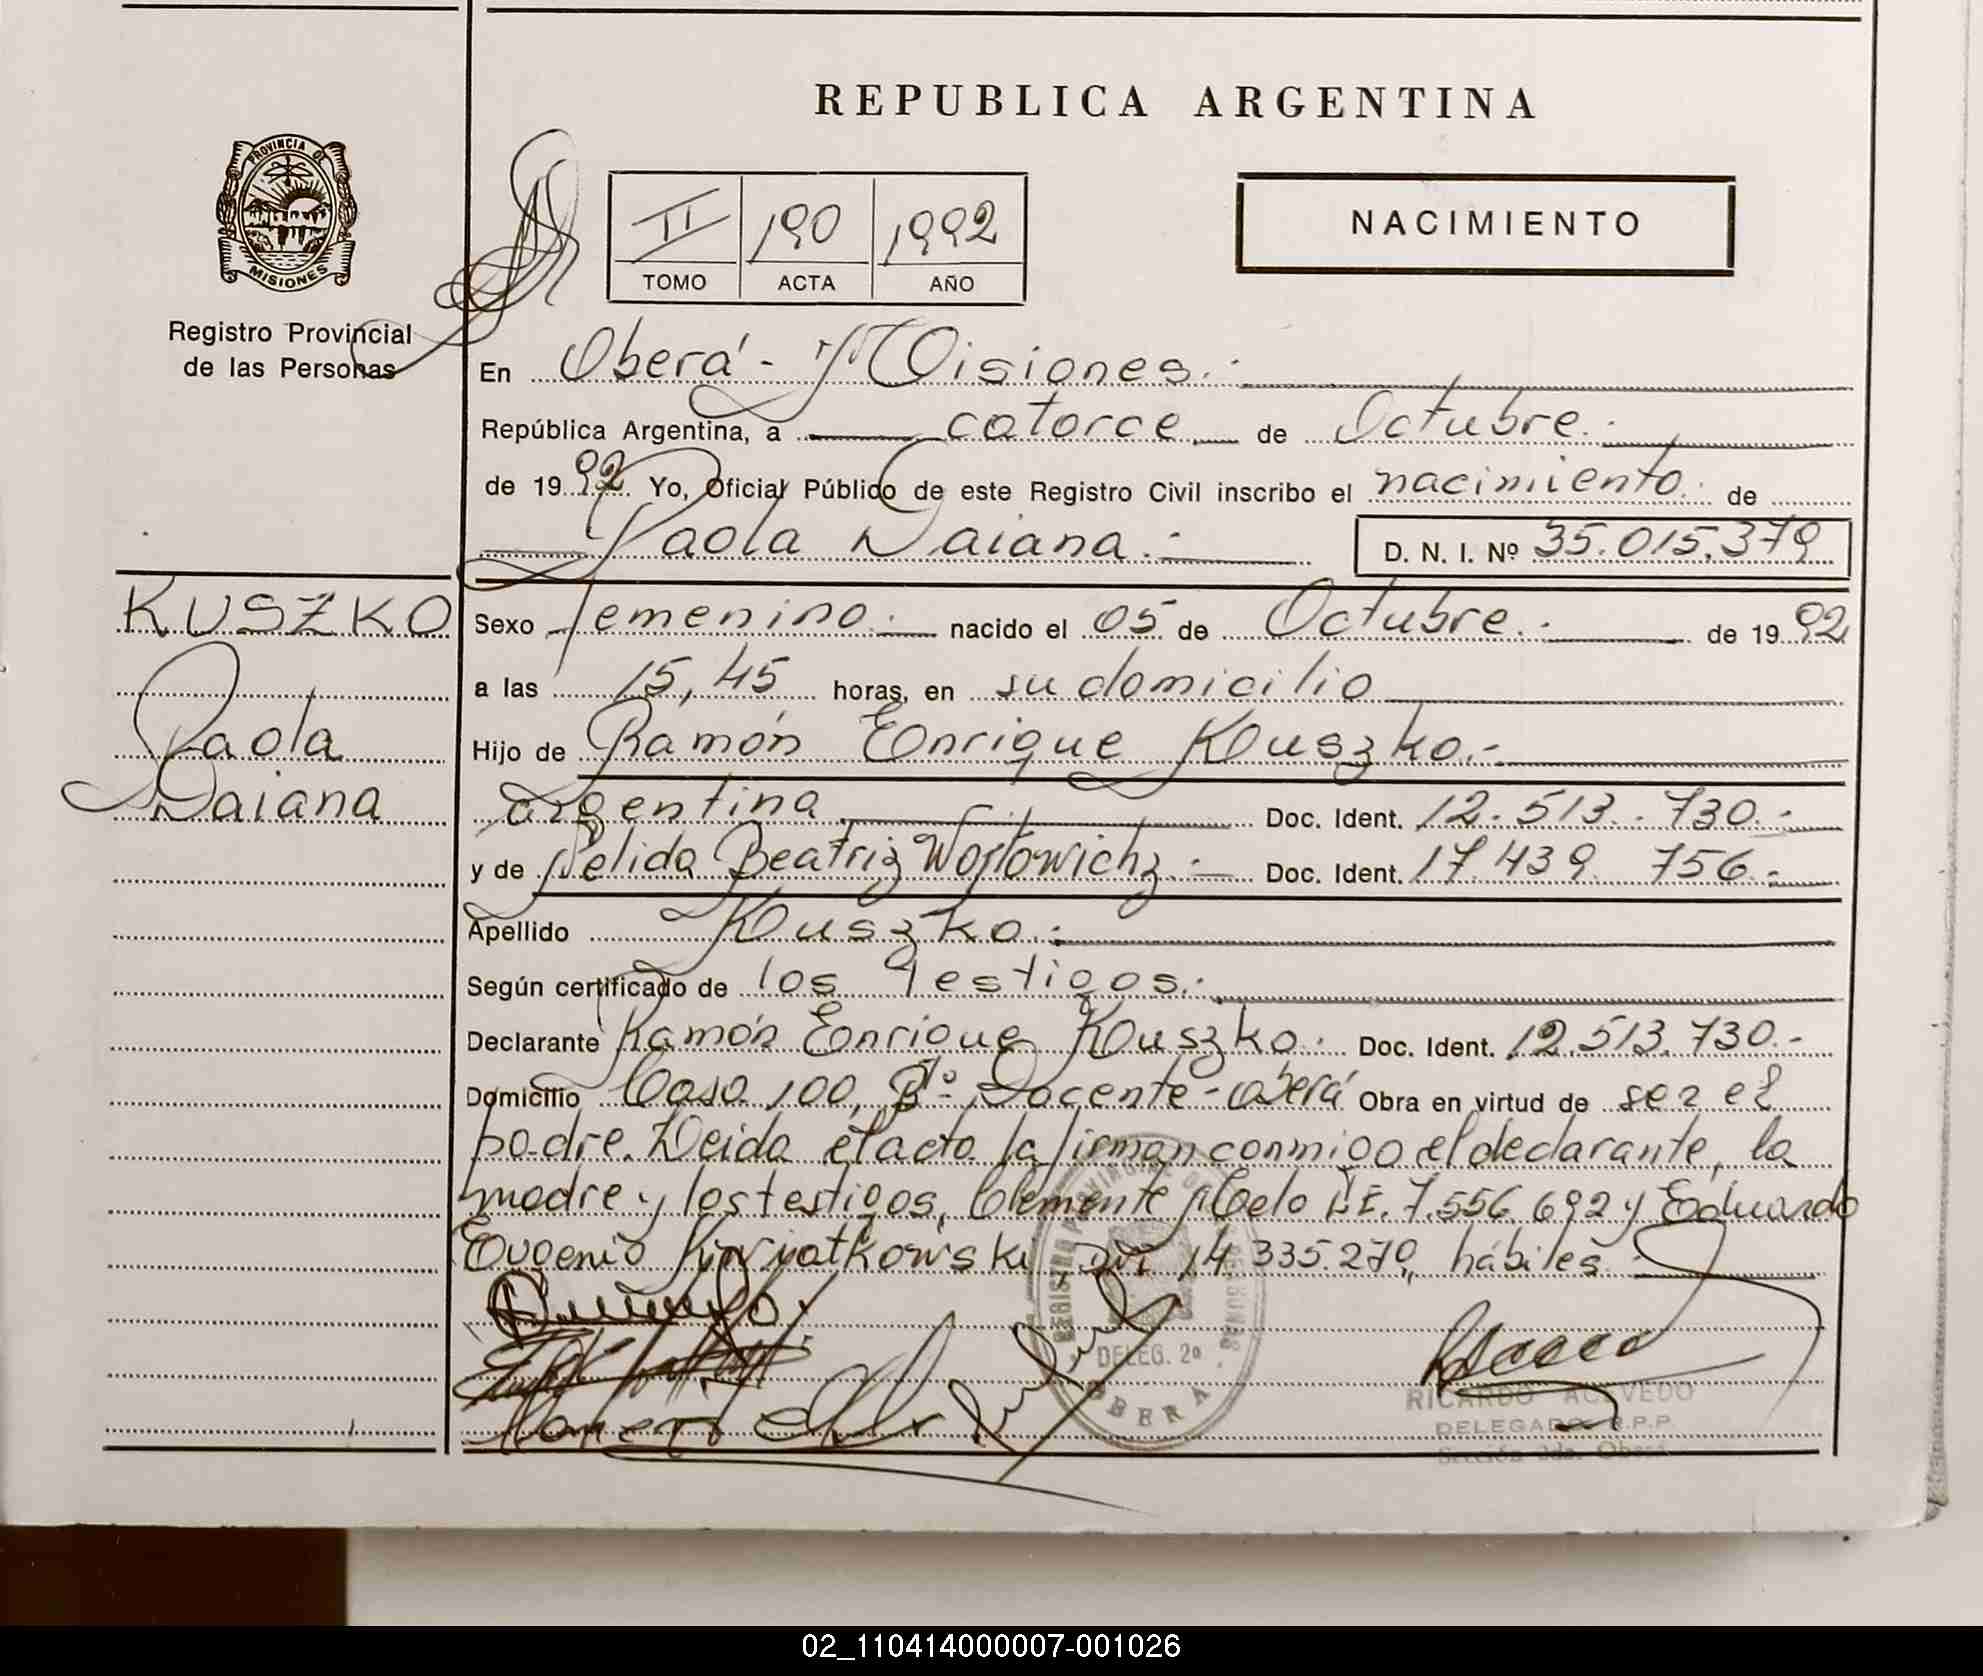 REPUBLICA ARGENTINA
PROVINCIA DE
MISIONES
Registro Provincial
de las Personas
II 190 1992
TOMO ACTA AÑO
NACIMIENTO
En Oberá - Misiones.-
República Argentina, a catorce de Octubre.-
de 1992 Yo, Oficial Público de este Registro Civil inscribo el nacimiento. de
Paola Daiana.- D. N. I. Nº 35.015.379
KUSZKO
Paola
Daiana
Sexo femenino.- nacido el 05 de Octubre.- de 1992
a las 15,45 horas, en su domicilio
Hijo de Ramón Enrique Kuszko.-
argentina Doc. Ident. 12.513.730.-
y de Nelida Beatriz Wojtowichz.- Doc. Ident. 17.439.756.-
Apellido Kuszko.-
Según certificado de los Testigos.-
Declarante Ramón Enrique Kuszko. Doc. Ident. 12.513.730.-
Domicilio Casa 100, Bº Docente - Oberá Obra en virtud de ser el
padre. Leida el acta la firman conmigo el declarante, la
madre y los testigos, Clemente Melo L.E. 7.556.692 y Eduardo
Eugenio Kwiatkowski, DNI 14.335.279, hábiles.-
DELEG. 2ª
OBERA
RICARDO ACEVEDO
DELEGADO R.P.P.
Sección 2da. Oberá
02_110414000007-001026